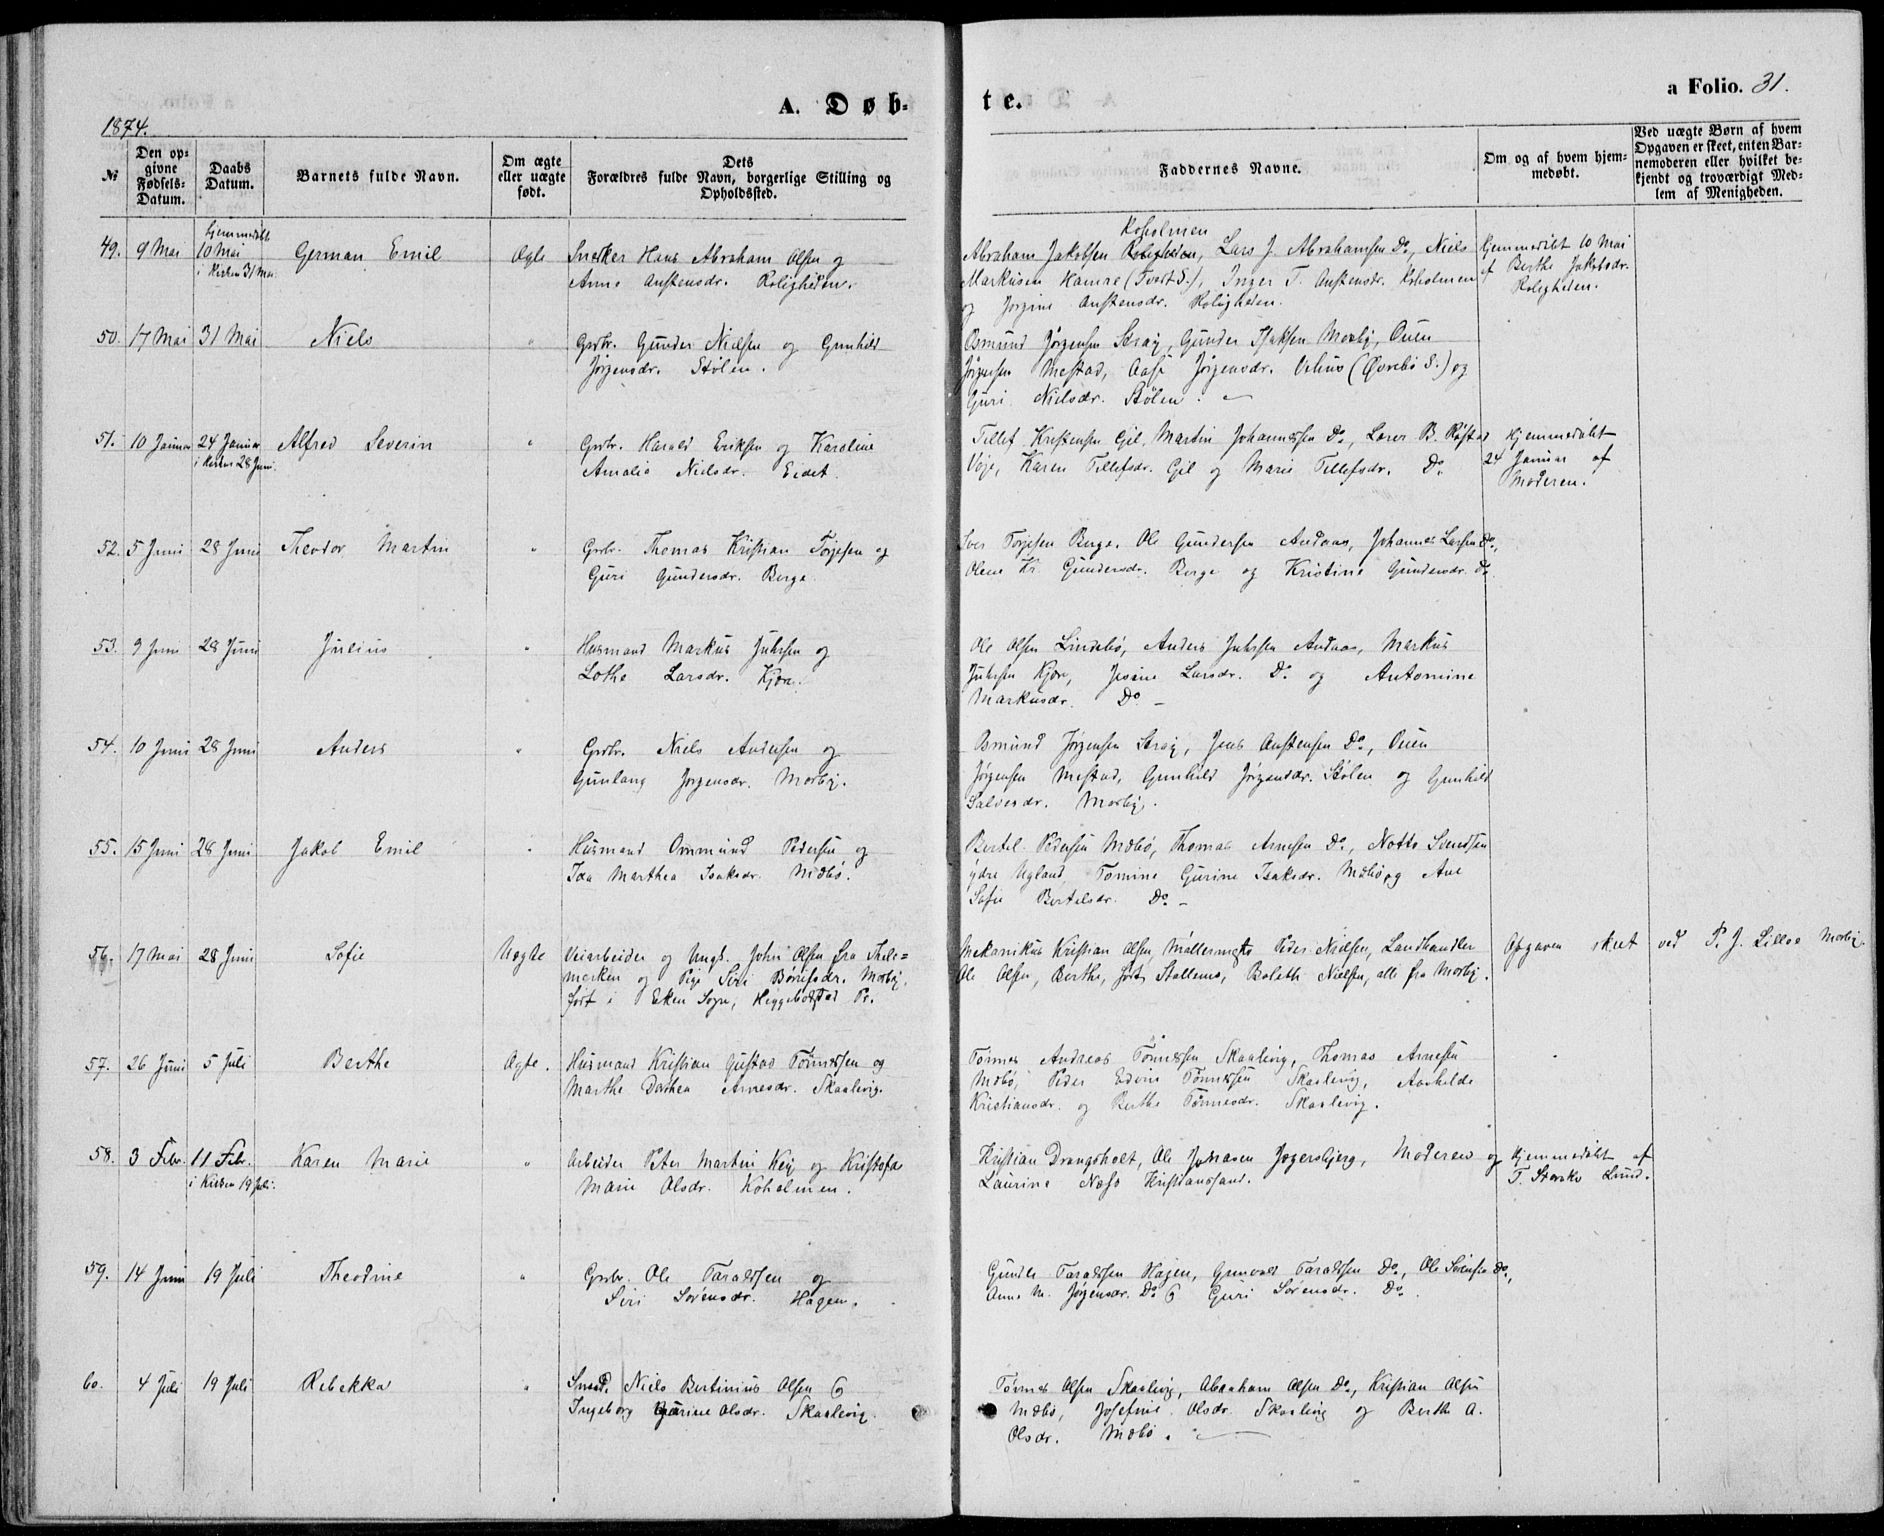 A. Døb-
te.
a Folio. 31.
1874.
№
Den op-
givne
Fødsels-
Datum.
Daabs
Datum.
Barnets fulde Navn.
Om ægte
eller uægte
født.
Dets
Forældres fulde Navn, borgerlige Stilling og
Opholdssted.
Faddernes Navne.
Om og af hvem hjem-
medøbt.
Ved uægte Børn af hvem
Opgaven er skeet, enten Bar-
nemoderen eller hvilket be-
kjendt og troværdigt Med-
lem af Menigheden.
49. 9 Mai
Hjemmedøbt
10 Mai
i Kirken 31 Mai
German Emil
Ægte
Snedker Hans Abraham Olsen og
Anne Anstensdr. Roligheden.
Koholmen
Abraham Jakobsen Roligheden, Lars J. Abrahamsen Do, Niels
Markusen Hamre (Tveit S.), Inger T. Anstensdr. Koholmen
og Jorgine Anstensdr. Roligheden.
Hjemmedøbt 10 Mai
af Berthe Jakobsdr.
Roligheden.
50. 17 Mai 31 Mai Niels "
Grbr. Gunder Nielsen og Gunhild
Jørgensdr. Stølen.
Osmund Jørgensen Strai, Gunder Isaksen Mosby, Ouen
Jørgensen Mestad, Aase Jørgensdr. Vehus (Øvrebø S.) og
Guri Nielsdr. Stølen.
51. 10 Januar 24 Januar
i Kirken 28 Juni.
Alfred Severin "
Grbr. Harald Eriksen og Karoline
Amalia Nielsdr. Eidet.
Tellef Kristensen Gil, Martin Johannesen Do, Lærer B. Røstad
Voje, Karen Tellefsdr. Gil og Marie Tellefsdr. Do.
Hjemmedøbt
24 Januar af
Moderen.
52. 5 Juni 28 Juni Theodor Martin "
Grbr. Thomas Kristian Torjesen og
Guri Gundersdr. Berge
Iver Torjesen Berge, Ole Gundersen Andaas, Johannes Larsen Do,
Olene Kr. Gundersdr. Berge og Kristine Gundersdr. Do
53. 9 Juni 28 Juni Julius "
Husmand Markus Juhlsen og
Lothe Larsdr. Kjær.
Ole Olsen Lindebø, Anders Juhlsen Andaas, Markus
Juhlsen Kjær, Jesine Larsdr. Do og Antomine
Markusdr. Do -
54. 10 Juni 28 Juni Anders "
Grbr. Niels Andersen og
Gunlaug Jørgensdr. Mosby.
Osmund Jørgensen Strai, Jens Anstensen Do, Ouen
Jørgensen Mestad, Gunhild Jørgensdr. Stølen og Gunhild
Salvesdr. Mosby.
55. 15 Juni 28 Juni Jakob Emil "
Husmand Ommund Pedersen og
Ida Marthea Isaksdr. Mæbø.
Bertel Pedersen Mæbø, Thomas Arnesen Do, Notto Svendsen
ydre Ugland, Tomine Gurine Isaksdr. Mæbø og Ane
Sofie Bertelsdr. Do -
56. 17 Mai 28 Juni Sofie Uægte
Veiarbeider og Ungk. John Olsen fra Thele-
merken og Pige Siri Børufsdr. Mosby,
født i Eken Sogn, Heggebostad Pr.
Mekanikus Kristian Olsen, Møllermester Peder Nielsen, Landhandler
Ole Olsen, Berthe, født Stallemo, Boleth Nielsen, alle fra Mosby.
Opgaven skeet ved P. J. Lilloe Mosby.
57. 26 Juni 5 Juli Berthe Ægte.
Husmand Kristian Gustav Tønnesen og
Marthe Dorthea Arnesdr. Skaalevig.
Tønnes Andreas Tønnesen Skaalevig, Thomas Arnesen
Mæbø, Peder Edvin Tønnesen Skaalevig, Aashilde
Kristiansdr. og Berthe Tønnesdr. Skaalevig.
58. 3 Febr. 11 Febr.
i Kirken 19 Juli.
Karen Marie "
Arbeider Peter Martin Kei og Kristofa
Marie Olsdr. Koholmen.
Kristian Drangsholt, Ole Johnsen Jegersbjerg, Moderen og
Laurine Næss Kristiansand.
Hjemmedøbt af
T. Starske Lund.
59. 14 Juni 19 Juli Theodine "
Grbr. Ole Taraldsen og
Siri Sørensdr. Hagen.
Gunder Taraldsen Hagen, Gunvald Taraldsen Do, Ole Sørensen Do,
Anne M. Jørgensdr. Do & Guri Sørensdr. Do.
60. 4 Juli 19 Juli Rebekka "
Smed. Niels Bertinius Olsen &
Ingeborg Gurine Olsdr. Skaalevig.
Tønnes Olsen Skaalevig, Abraham Olsen Do, Kristian Olsen
Mæbø, Josefine Olsdr. Skaalevig og Berthe A.
Olsdr. Mæbø.